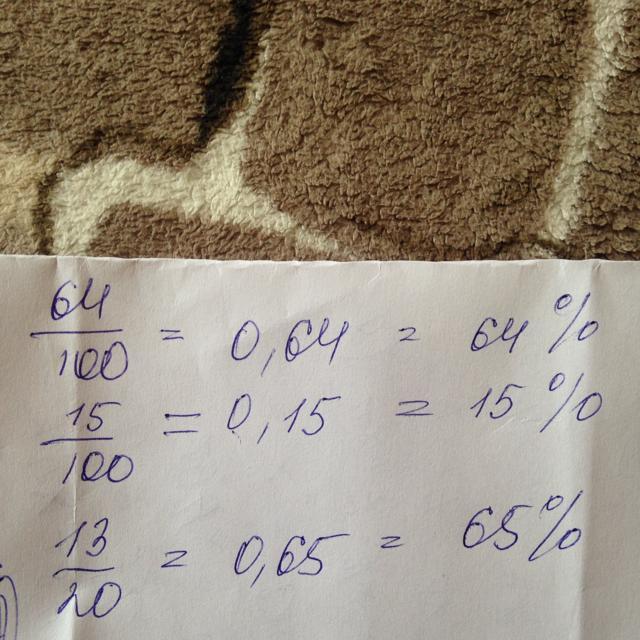 64/100 = 0,64 = 64 %
15/100 = 0,15 = 15 %
13/20 = 0,65 = 65%